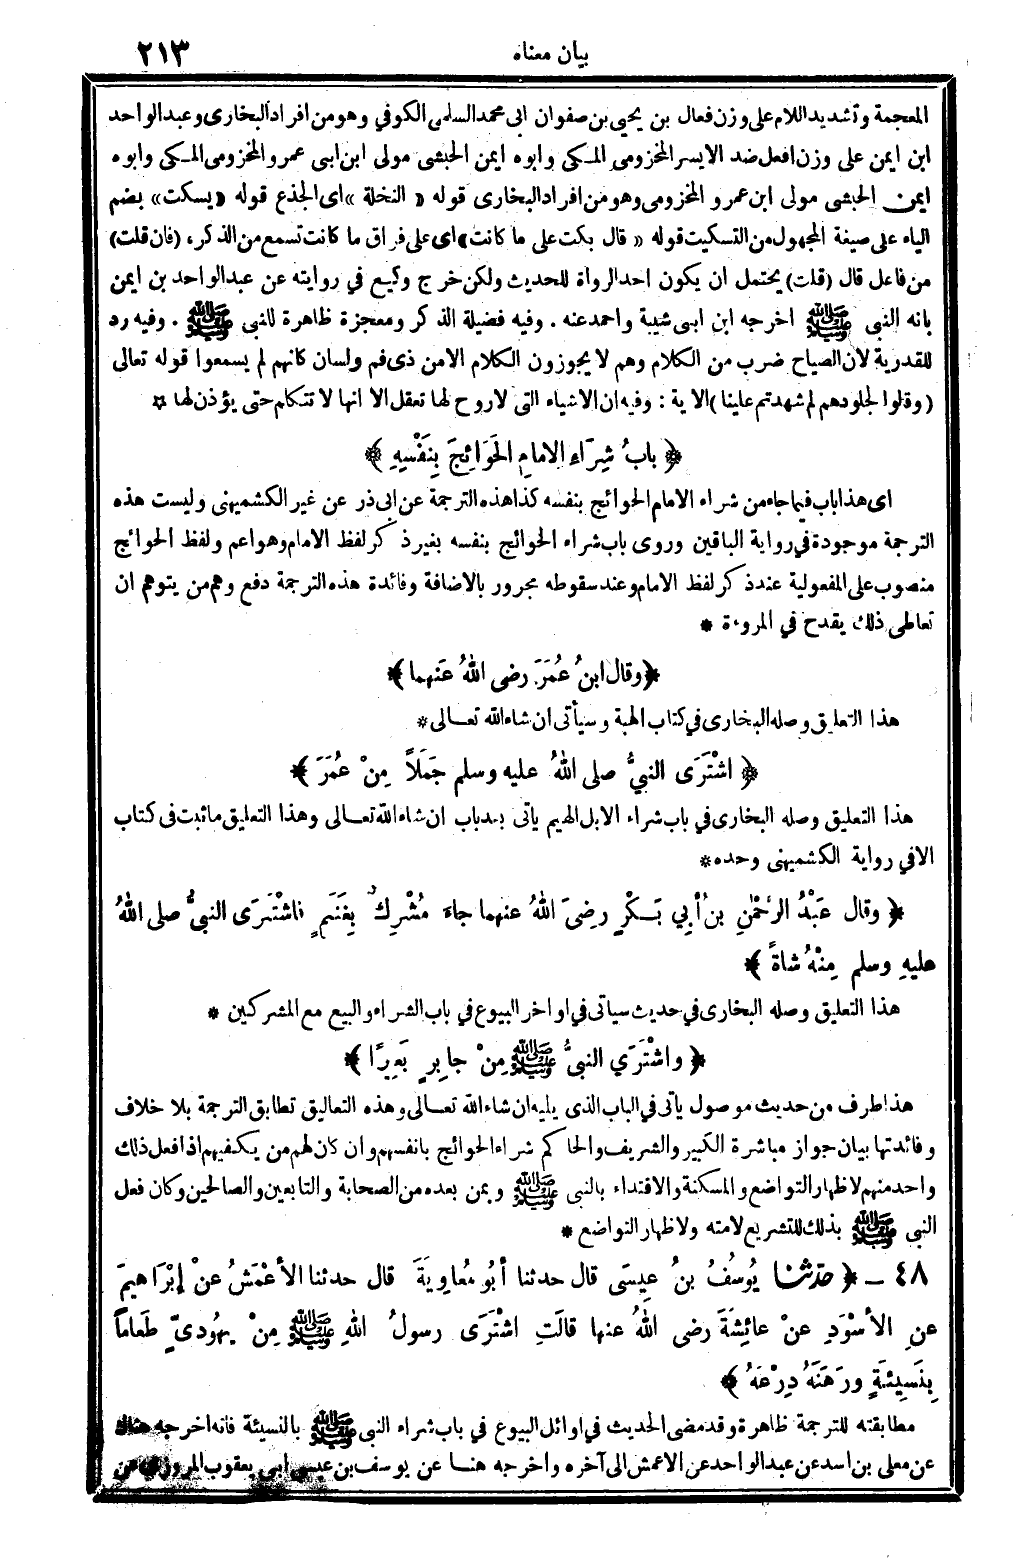 بيان معناه ٢١٣
المعجمة وتشديد اللام على وزن فعال بن يحيى بن صفوان ابى محمد السلمى الكوفي وهو من افراد البخارى وعبد الواحد
ابن ايمن على وزن افعل ضد الايسر المخزومى المكى وابوه ايمن الحبشى مولى ابن ابى عمرو المخزومى المكى وابوه
ايمن الحبشى مولى ابن عمرو المخزومى وهو من افراد البخارى قوله « النخلة » اى الجذع قوله « يسكت » بضم
الياء على صيغة المجهول من التسكيت قوله « قال بكت على ما كانت » اى على فراق ما كانت تسمع من الذكر ، (فان قلت)
من فاعل قال (قلت) يحتمل ان يكون احد الرواة للحديث ولكن خرج وكيع في روايته عن عبد الواحد بن ايمن
بانه النبى ﷺ اخرجه ابن ابى شيبة واحمد عنه . وفيه فضيلة الذكر ومعجزة ظاهرة للنبى ﷺ . وفيه رد
للقدرية لان الصياح ضرب من الكلام وهم لا يجوزون الكلام الا من ذى فم ولسان كانهم لم يسمعوا قوله تعالى
(وقالوا لجلودهم لم شهدتم علينا) الاية : وفيه ان الاشياء التى لا روح لها تعقل الا انها لا تتكلم حتى يؤذن لها ☆
﴿ بابُ شِرَاءِ الامامِ الحَوَائِجَ بِنَفْسِهِ ﴾
اى هذا باب فيما جاء من شراء الامام الحوائج بنفسه كذا هذه الترجمة عن ابى ذر عن غير الكشميهنى وليست هذه
الترجمة موجودة في رواية الباقين وروى باب شراء الحوائج بنفسه بغير ذكر لفظ الامام وهو اعم ولفظ الحوائج
منصوب على المفعولية عند ذكر لفظ الامام وعند سقوطه مجرور بالاضافة وفائدة هذه الترجمة دفع وهم من يتوهم ان
تعاطى ذلك يقدح في المروءة *
﴿ وقال ابنُ عُمَرَ رضى اللهُ عَنهما ﴾
هذا التعليق وصله البخارى في كتاب الهبة وسيأتى ان شاء الله تعالى *
﴿ اشْتَرَى النبيُّ صلى اللهُ عليه وسلم جَمَلاً مِنْ عُمَرَ ﴾
هذا التعليق وصله البخارى في باب شراء الابل الهيم يأتى بعد باب ان شاء الله تعالى وهذا التعليق ما ثبت فى كتاب
الا في رواية الكشميهنى وحده *
﴿ وقال عَبْدُ الرَّحْمٰنِ بنُ أبي بَكْرٍ رضىَ اللهُ عنهما جاءَ مُشْرِكٌ بِغَنَمٍ فاشْتَرَى النبيُّ صلى اللهُ
عليهِ وسلم مِنْهُ شاةً ﴾
هذا التعليق وصله البخارى في حديث سيأتى في اواخر البيوع في باب الشراء والبيع مع المشركين *
﴿ واشْتَرَي النبيُّ ﷺ مِنْ جابِرٍ بَعِيرًا ﴾
هذا طرف من حديث موصول يأتى في الباب الذى يليه ان شاء الله تعالى وهذه التعاليق تطابق الترجمة بلا خلاف
وفائدتها بيان جواز مباشرة الكبير والشريف والحاكم شراء الحوائج بانفسهم وان كان لهم من يكفيهم اذا فعل ذلك
واحد منهم لاظهار التواضع والمسكنة والاقتداء بالنبى ﷺ وبمن بعده من الصحابة والتابعين والصالحين وكان فعل
النبى ﷺ بذلك للتشريع لامته ولاظهار التواضع *
٤٨ ــ ﴿ حدّثنا يُوسُفُ بنُ عِيسَى قال حدثنا أبُو مُعاوِيَةَ قال حدثنا الأعْمَشُ عنْ إبْرَاهِيمَ
عنِ الأسْوَدِ عنْ عائِشَةَ رضى اللهُ عنها قالَتِ اشْتَرَى رسولُ اللهِ ﷺ مِنْ يهُودىّ طَعاماً
بِنَسِيئَةٍ ورَهَنَهُ دِرْعَهُ ﴾
مطابقته للترجمة ظاهرة وقد مضى الحديث في اوائل البيوع في باب شراء النبى ﷺ بالنسيئة فانه اخرجه هناك
عن معلى بن اسد عن عبد الواحد عن الاعمش الى آخره واخرجه هنا عن يوسف بن عيسى ابى يعقوب المروزى عن